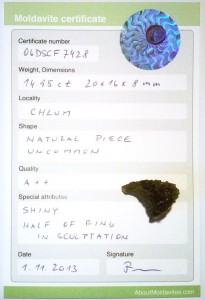 Moldavite certificate
Certificate number
06DSCF7428
Weight, Dimensions
14.95 ct 20x16x8 mm
Locality
CHLUM
Shape
NATURAL PIECE
UNCOMMON
Quality
A++
Special attributes
SHINY
HALF OF RING
IN SCULPTATION
Date
Signature
1.11.2013
AboutMoldavites.com